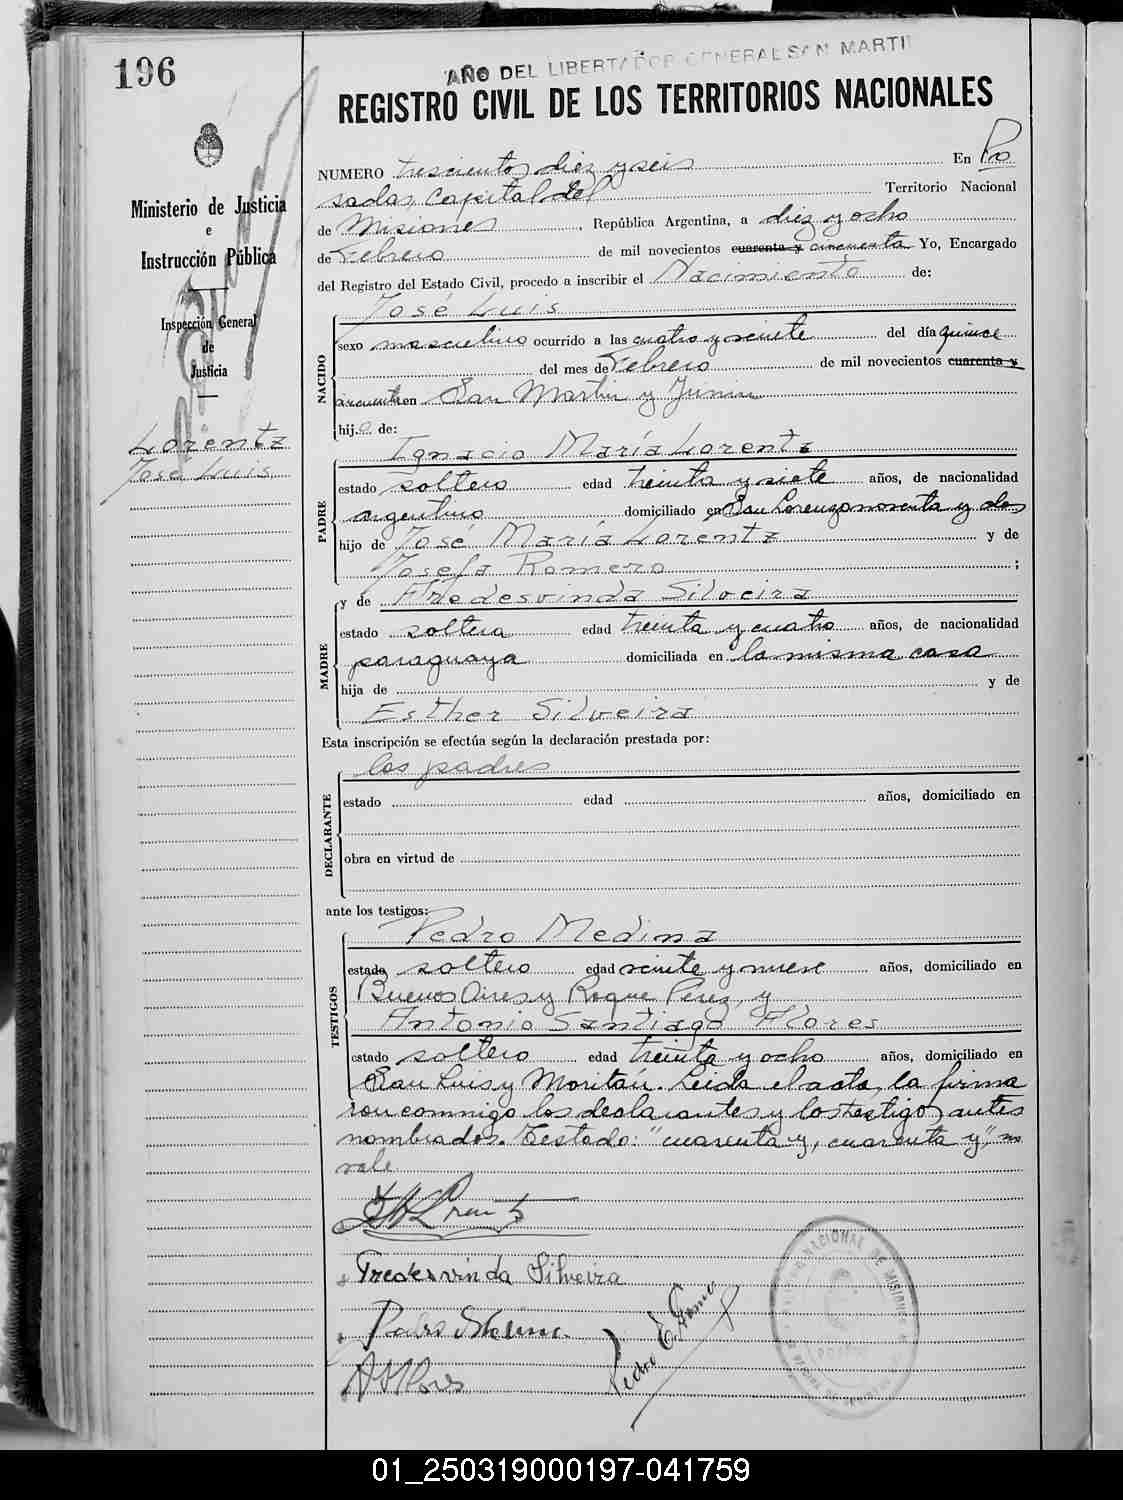 196
AÑO DEL LIBERTADOR GENERAL SAN MARTI
REGISTRO CIVIL DE LOS TERRITORIOS NACIONALES
Ministerio de Justicia
e
Instrucción Pública
Inspección General
de
Justicia
Lorentz
José Luis
NUMERO trescientos diez y seis En Po
sadas, Capital del Territorio Nacional
de Misiones, República Argentina, a diez y ocho
de Febrero de mil novecientos cuarenta y cincuenta Yo, Encargado
del Registro del Estado Civil, procedo a inscribir el Nacimiento de:
NACIDO
José Luis
sexo masculino ocurrido a las cuatro y veinte del día quince
del mes de Febrero de mil novecientos cuarenta y
cincuenta en San Martin y Junin
hijo de:
PADRE
Ignacio María Lorentz
estado soltero edad treinta y siete años, de nacionalidad
argentino domiciliado en San Lorenzo noventa y dos
hijo de José María Lorentz y de
Josefa Romero ;
MADRE
y de Fredesvinda Silveira
estado soltera edad treinta y cuatro años, de nacionalidad
paraguaya domiciliada en la misma casa
hija de y de
Esther Silveira
Esta inscripción se efectúa según la declaración prestada por:
DECLARANTE
los padres
estado edad años, domiciliado en
obra en virtud de
ante los testigos:
TESTIGOS
Pedro Medina
estado soltero edad veinte y nueve años, domiciliado en
Buenos Aires y Roque Perez, y
Antonio Santiago Flores
estado soltero edad treinta y ocho años, domiciliado en
San Luis y Moritán. Leida el acta, la firma
ron conmigo los declarantes y los testigos antes
nombrados. Testado: "cuarenta y, cuarenta y", no
vale
Fredesvinda Silveira
Pedro E. Gomez
01_250319000197-041759